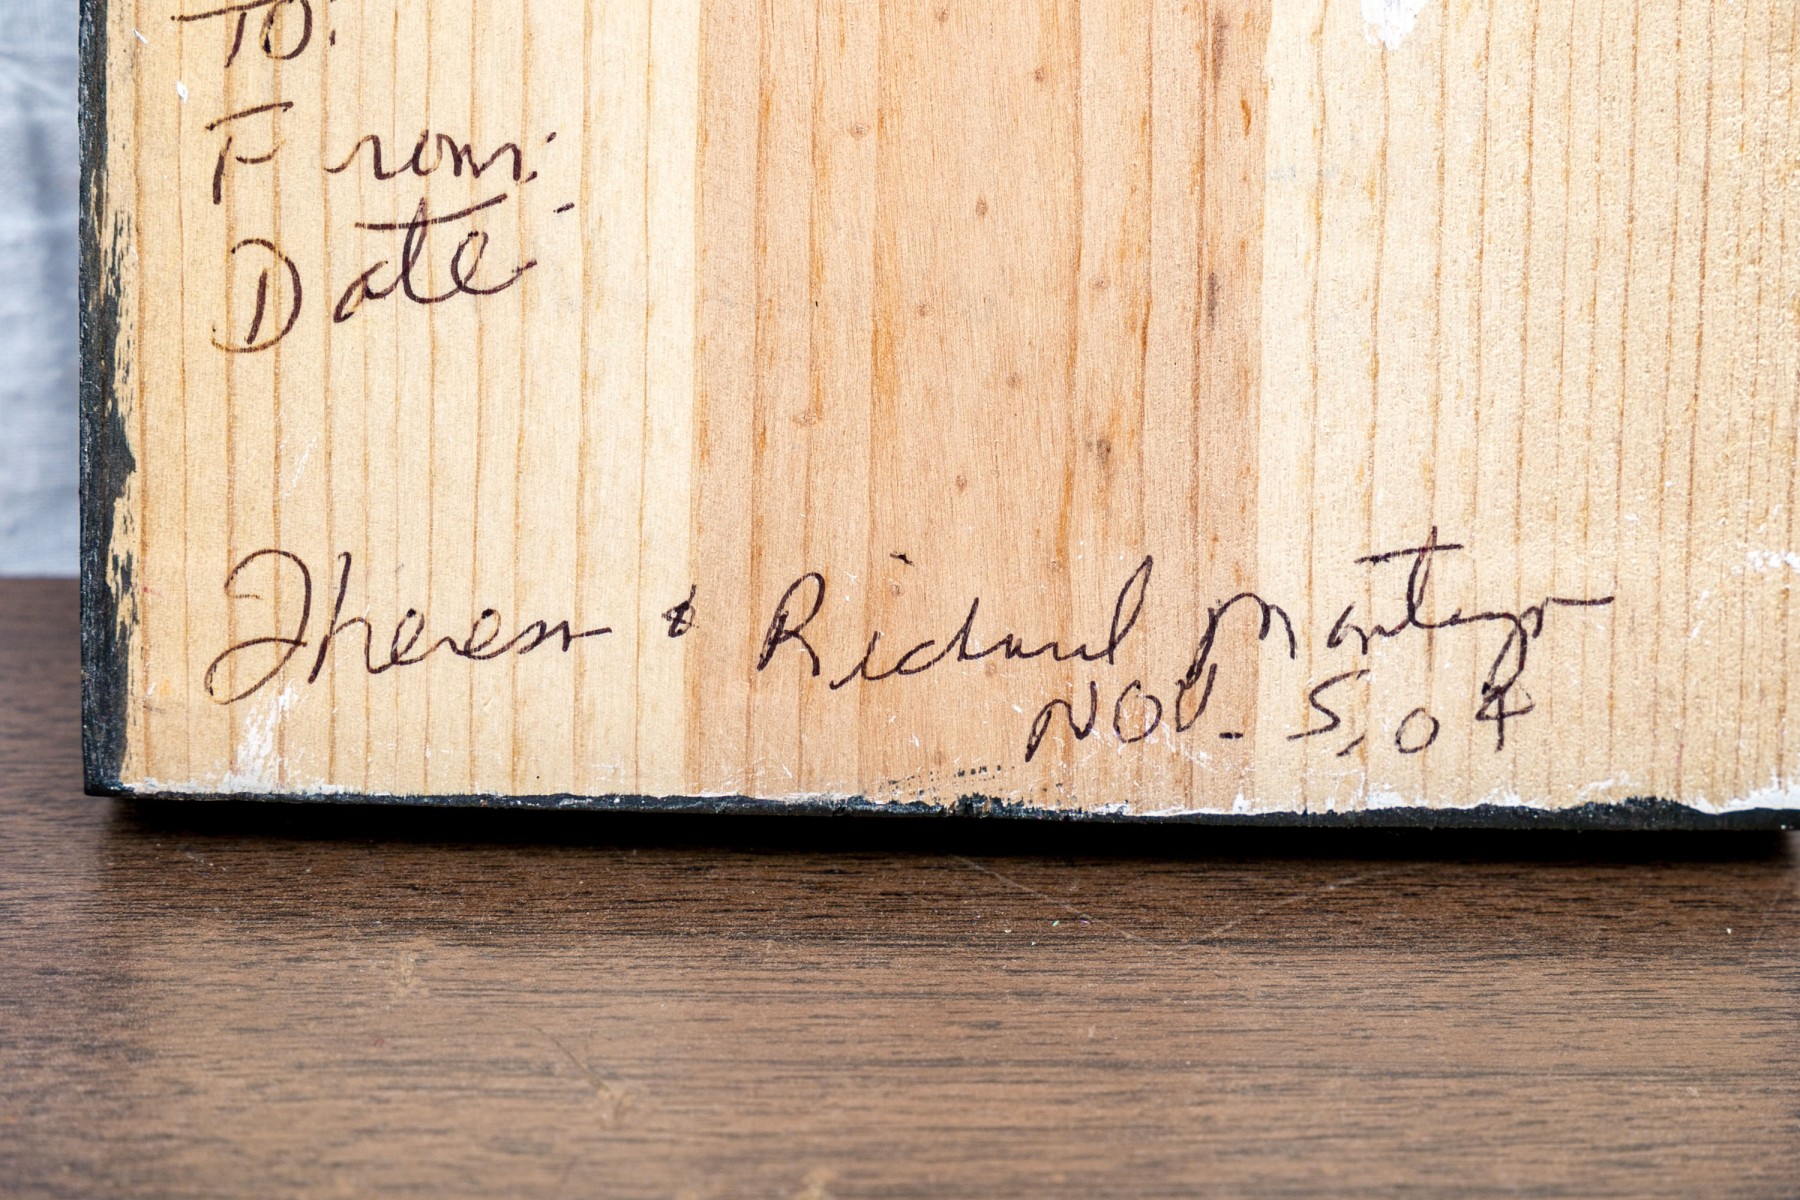 To:
From:
Date:
Theresa & Richard
Nov. 5, 04